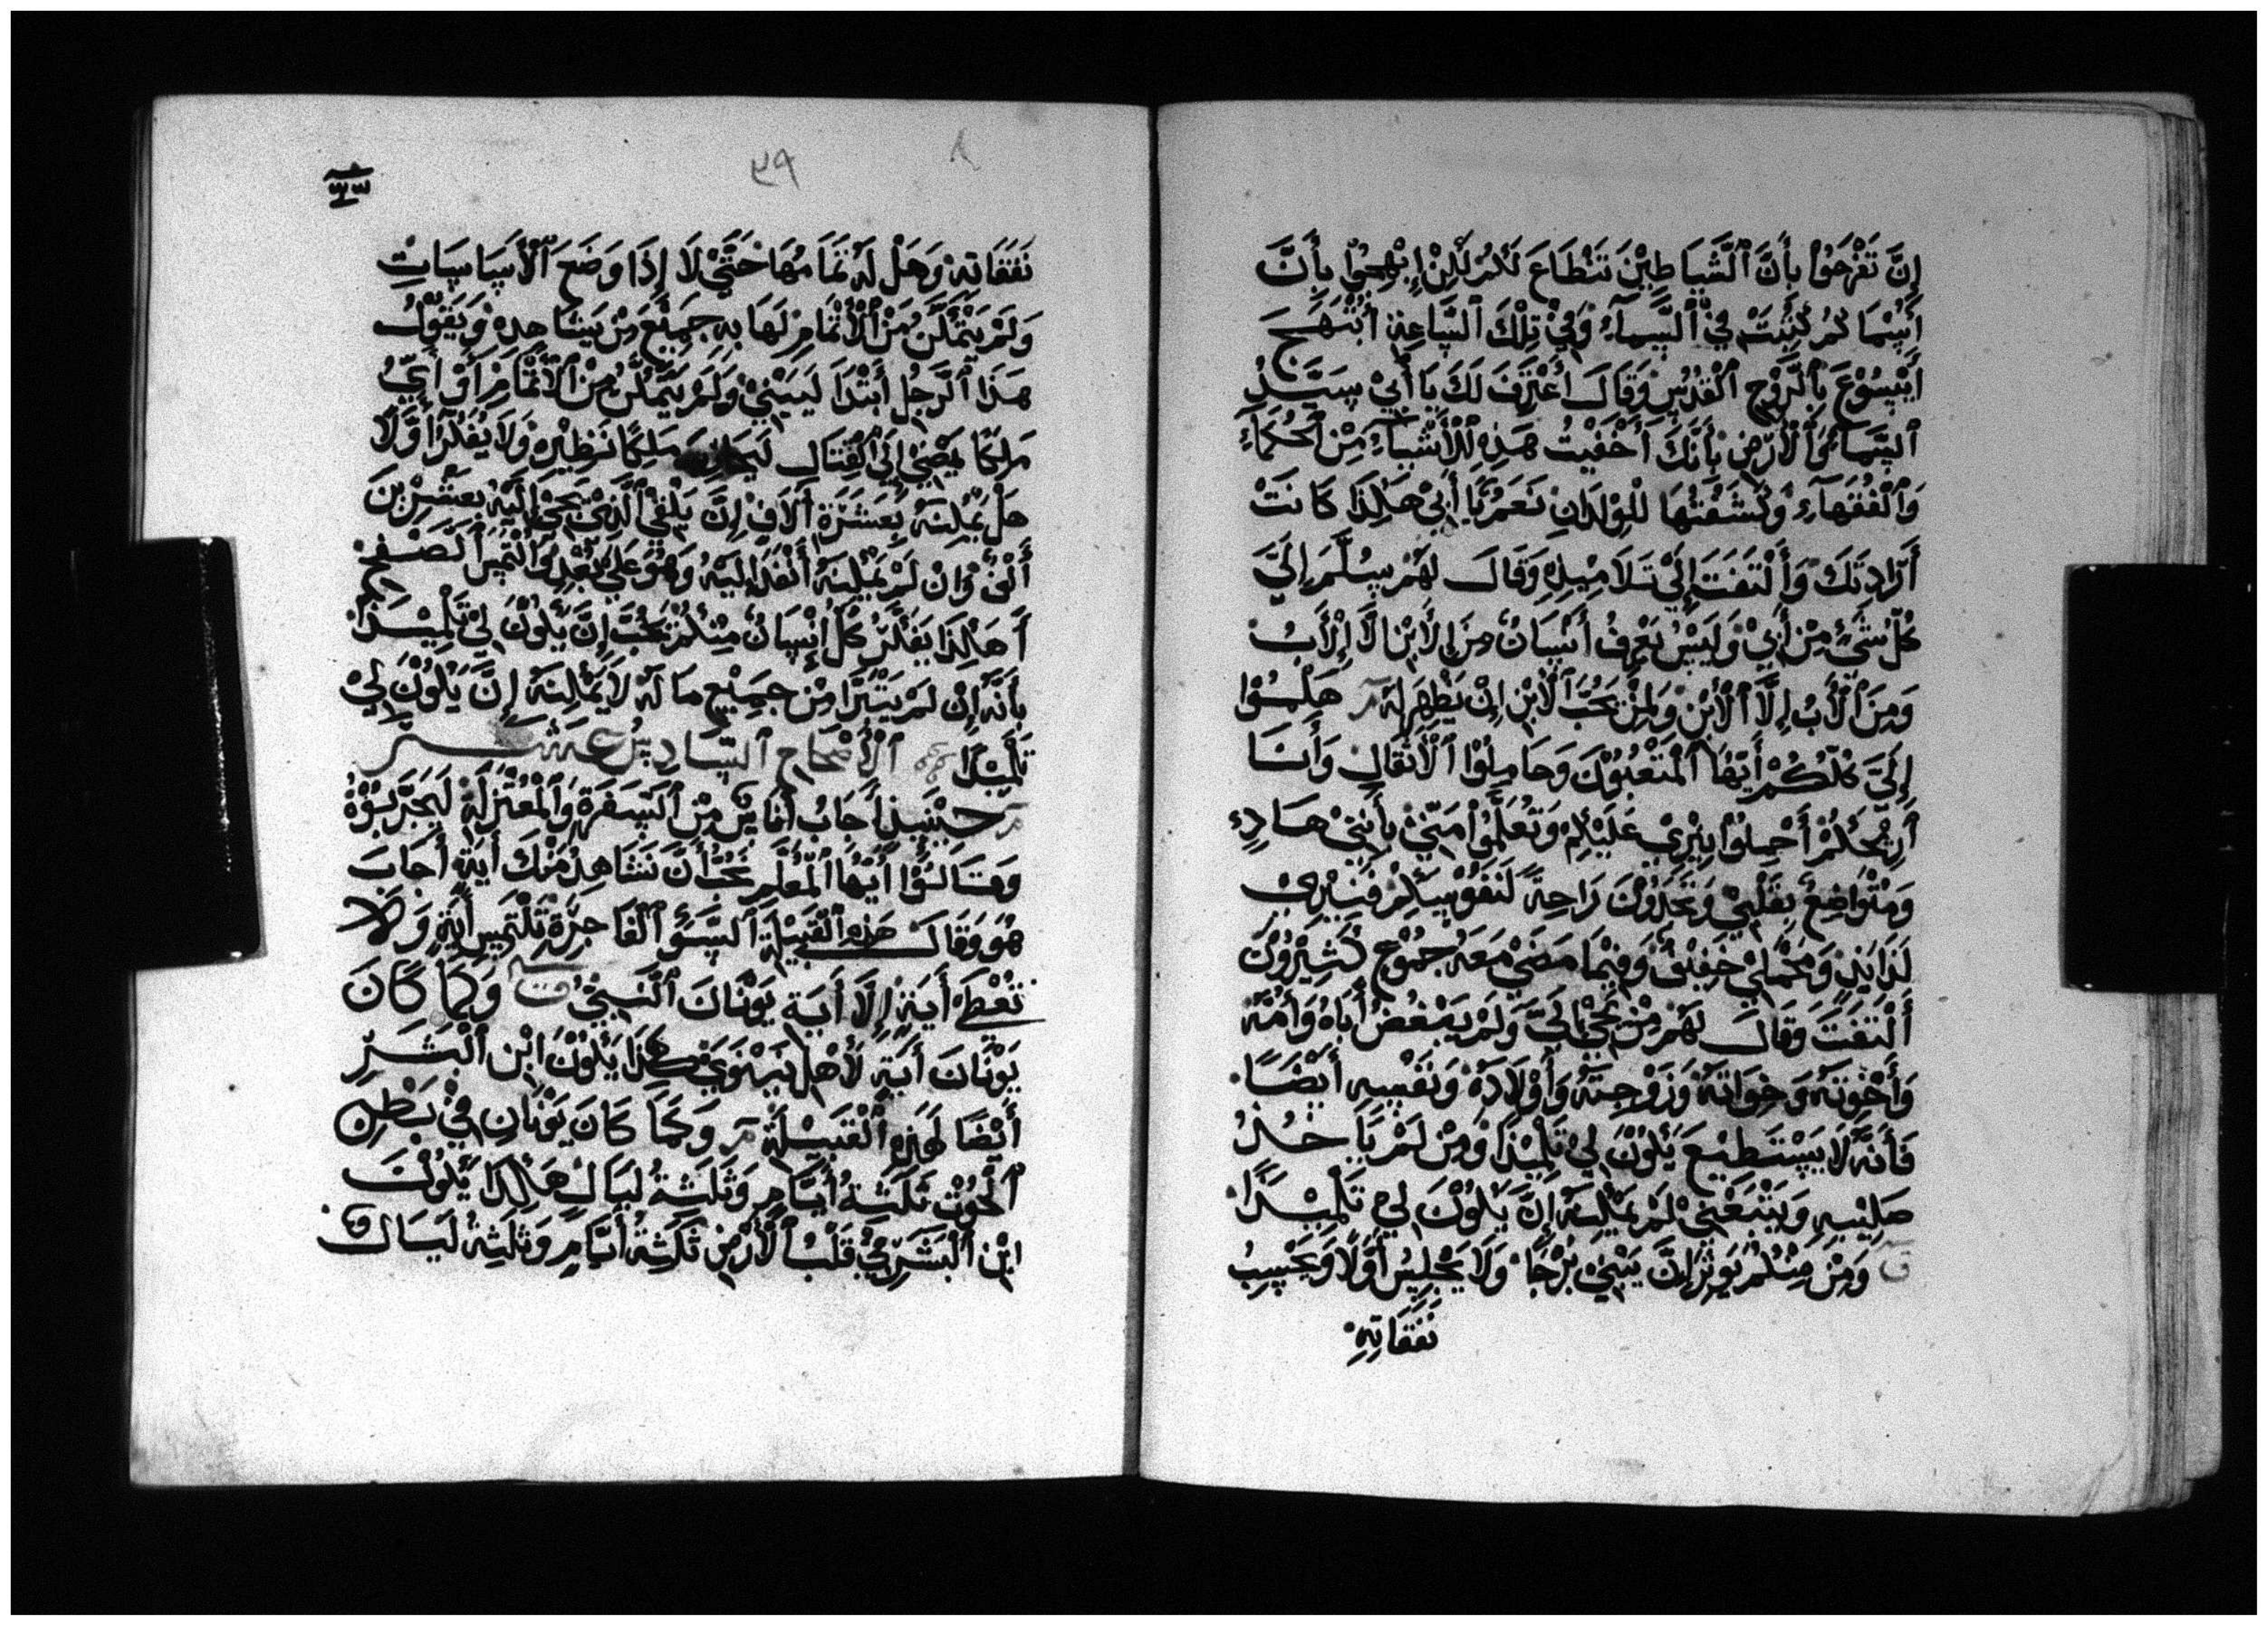 إِنَّ تَفْرَحُوْا بِأَنَّ ٱلشَّيَاطِيْنَ تَنْطَاعَ لَكُمْ لَكِنْ إِبْهِجُوْا بِأَنَّ
أَسِمَاكُمْ كُتِبَتْ فِيْ ٱلسَّمَآءِ وَفِيْ تِلْكَ ٱلسَّاعِةِ أَبْتَهَجَ
أَيْسُوْعَ بِٱلرَّوْحِ ٱلْقُدُسِ وَقَالَ اعْتَرِفَ لَكَ يَا أَبِيْ سَيِّدُ
ٱلسَّمَآءِ وَٱلْأَرْضِ بِأَنَّكَ أَخْفَيْتَ هَذِهِ ٱلْأَشْيَآءَ مِنْ ٱلْحُكَمَآءِ
وَٱلْفُقَهَآءِ وَكَشَفْتَهَا لِلْوِلْدَانِ نَعَمْ يَا أَبِيْ هَكَذَا كَانَتْ
أَرَادَتَكَ وَٱلْتَفَتَ إِلَىْ تَلَامِيْذِهِ وَقَالَ لَهُمْ سُلِّمَ إِلَيَّ
كُلَّ شَيْءٍ مِنْ أَبِيْ وَلَيْسَ يَعْرِفُ أَنْسَانٌ مِنَ الْأَبْنِ إِلَّا الْأَبُ
وَمِنَ ٱلْأَبُ إِلَّا ٱلْأَبْنِ وَلِمَنْ يُحِبُّ ٱلْأَبْنِ إِنْ يَظْهِرَ لَهُ مر هَلِمُّوْا
إِلَيَّ كُلُّكُمْ أَيُّهَا ٱلْمَتْعُبُوْنَ وَحَامِلُوْا ٱلْأَثْقَالِ وَأَنَا
أَرِيْحُكُمْ أَحْمِلُوْا نِيْرِيْ عَلَيْكِمْ وَتَعَلَّمُوْا مِنِّيْ بِأَنِّنِيْ هَادِئٌ
وَمُتْوَاضِعٌ بِقَلْبِيْ وَتَجِدُوْنَ رَاحِةً لَنَفُوْسِكِمْ فَنِيْرِيْ
لَذَايِذٌ وَمَحْمَلِيْ خَفِيْفٌ وَفِيْمَا مَضَىْ مَعَهُ جُمُوْعٌ كَثِيْرُوْنَ
أَلْتَفَتَ وَقَالَ لَهُمْ مِنْ يَجِيْ إِلَيَّ وَلَمْ يَبْغُضْ أَبَاهُ وَأُمَّهُ
وَأَخْوَتَهُ وَخِوَاتَهُ وَزَوْجِتَهُ وَأَوْلَادَهُ وَنَفْسِهِ أَيْضًا
فَأَنَّهُ لَا يَسْتَطِيْعَ يَكُوْنَ لِيْ تَلْمِيْذًا وَمِنْ لَمْ يَاخُذُ
صَلِيْبِهِ وَيَتْبَعْنِيْ لَمْ يَمْكِنَهُ إِنَّ يَكُوْنَ لِيْ تَلْمِيْذًا
ق وَمِنْ مِنْكُمْ يَوْثِرْ إِنَّ يَبْنِيْ بُرْجًا وَلَا يَجْلِسُ أَوَّلًا وَيَحْسِبُ
نَفَقَاتِهِ
٣٩
نَفَقَاتِهِ وَهَلْ لَهُ تَمَامُهَا حَتَّىْ لَا إِذَا وَضَعَ ٱلْأَسَاسَاتِ
وَلَمْ يَتْمَكَّنُ مِنْ ٱلْأَتْمَامِ لَهَا بِهِ جَمِيْعَ مِنْ يَشَاهِدِهْ وَيَقُوْلُ
هَذَا ٱلرَّجُلِ أَبْتَدَا لَيَبْنِيْ وَلَمْ يَتَمَكَّنُ مِنْ ٱلْأَتْمَامِ أَوْ أَيُّ
مَلِكًا يَمْضِيْ إِلَىْ ٱلْقِتَالِ لَيَحَارِبَ مَلِكًا نَظِيْرِهِ وَلَا يُفَكِّرُ أَوَّلًا
هَلْ يُمْكِنَهُ بِعَشَرَةِ أَلَافٍ إِنَّ يَلْقَىْ ٱلَّذِيْ يَجِيْ إِلَيْهِ بِعِشْرِيْنَ
أَلْفٍ وَإِنْ لَمْ يُمْكِنَهُ أَنْفَذَ إِلَيْهِ وَهُوَ عَلَىْ بُعْدٍ وَٱلْتَمِسَ ٱلصَّفْحَ
أَهَكَذَا يَفَكِّرُ كُلَّ إِنْسَانٌ مِنْكُمْ يُحِبُّ إِنَّ يَكُوْنَ لِيْ تَلْمِيْذًا
بِأَنَّهُ إِنْ لَمْ يَتْبَرَّا مِنْ جَمِيْعِ مَا لَهُ لَا يَمْكِنَهُ إِنَّ يَكُوْنَ لِيْ
تَلْمِيْذًا ٱلْأَصْحَاحِ ٱلسَّادِسْ عَشَر
مر حِيْنَيِذٍ أَجَابُ أُنَاسٌ مِنْ ٱلسَفَرَةِ وَٱلْمُعْتَزِلَةِ لَيَجَرِّبُوْهُ
وَقَالُوْا أَيُّهَا ٱلْمُعَلِّمِ نُحِبُّ أَنَّ نَشَاهِدُ مِنْكَ أَيَةٍ أَجَابَ
هُوَ وَقَالَ هَذِهِ ٱلْقَبِيْلَةِ ٱلسُّوْءِ ٱلْفَاجِرَةِ تَلْتَمِسِ أَيَةٍ وَلَا
تُعْطَىْ أَيَةٍ إِلَّا أَيَةِ يَوْنَانَ ٱلنَّبِيْ مت وَكَمَا كَانَ
يَوْنَانَ أَيَةٍ لَأَهْلِ نِيْنَوَيْ هَكَذَا يَكُوْنَ ابْنِ ٱلْبَشَرِ
أَيْضًا لَهَذِهِ ٱلْقَبِيْلَةِ مر وَكَمَا كَانَ يَوْنَانِ فِيْ بَطْنِ
ٱلْحُوْتِ ثَلَثَةُ أَيَّامٍ وَثَلَثِةُ لَيَالٍ هَكَذَا يَكُوْنَ
ابْنِ ٱلْبَشَرِ فِيْ قَلْبُ ٱلْأَرْضِ ثَلَثِةُ أَيَّامٍ وَثَلَثِةُ لَيَالٍ ق